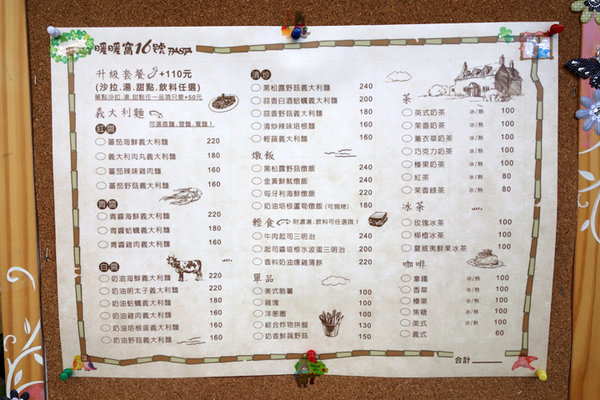 暖暖窩16號 PASTA
升級套餐 +110元
(沙拉.湯.甜點.飲料任選)
單點沙拉.湯.甜點任一品項只要+50元
義大利麵
可選直麵.筆麵.寬麵!
紅醬
番茄海鮮義大利麵 220
義大利肉丸義大利麵 180
番茄辣味雞肉麵 160
番茄野菇義大利麵 160
青醬
青醬海鮮義大利麵 220
青醬蛤蠣義大利麵 180
青醬雞肉義大利麵 160
白醬
奶油海鮮義大利麵 220
奶油明太子義大利麵 180
奶油蛤蠣義大利麵 180
奶油雞肉義大利麵 160
奶油培根蛋義大利麵 160
奶油野菇義大利麵 160
清炒
黑松露野菇義大利麵 240
蒜香白酒蛤蠣義大利麵 200
蒜香野菇義大利麵 180
清炒辣味培根麵 160
輕蔬義大利麵 160
燉飯
黑松露野菇燉飯 240
金黃鮮魷燉飯 180
匈牙利海鮮燉飯 240
奶油培根蘆筍燉飯(可焗烤) 180
輕食 附濃湯.飲料可任選喔!
牛肉起司三明治 240
起司醬培根水波蛋三明治 200
香料奶油燻雞薄餅 220
單品
美式脆薯 100
雞塊 100
洋蔥圈 100
綜合炸物拼盤 130
奶香鮮蔬野菇 150
茶
英式奶茶 冰/熱 100
茉香奶茶 冰/熱 100
薰衣草奶茶 冰/熱 100
巧克力奶茶 冰/熱 100
榛果奶茶 冰/熱 100
紅茶 冰/熱 80
茉香綠茶 冰/熱 80
冰茶
玫瑰冰茶 100
柳橙冰茶 100
夏威夷鮮果冰茶 100
咖啡
拿鐵 冰/熱 100
香草 冰/熱 100
榛果 冰/熱 100
焦糖 冰/熱 100
美式 冰/熱 100
義式 60
合計